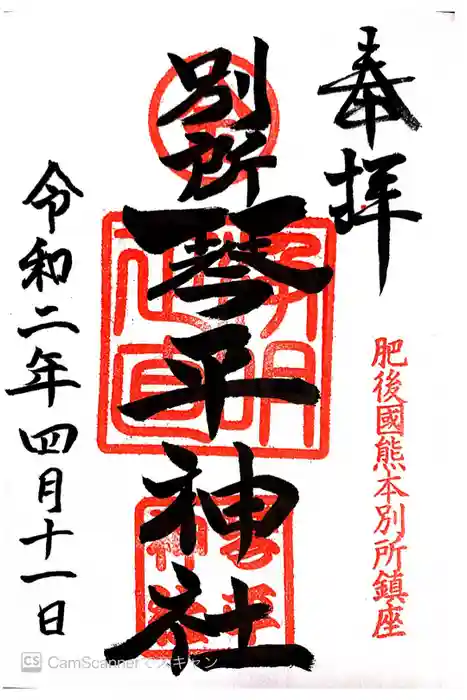 奉拝
肥後國熊本別所鎮座
別所琴平神社
令和二年四月十一日
CS CamScannerでスキャン